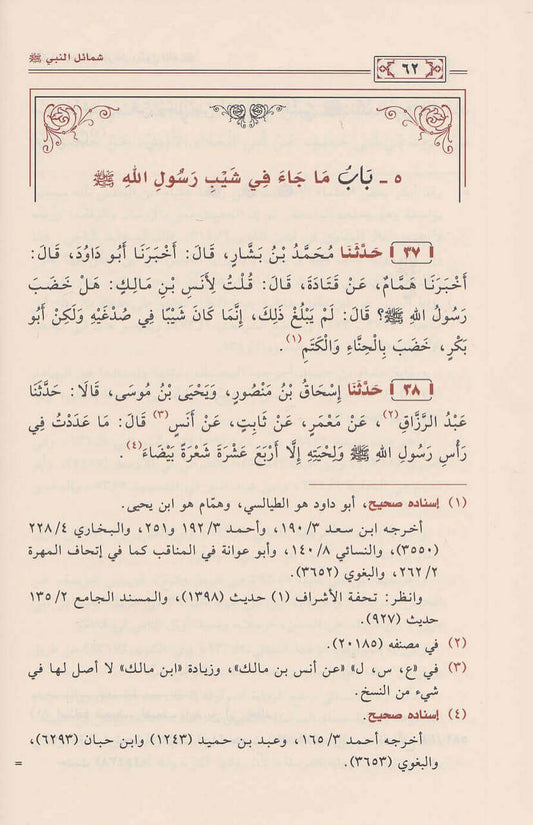 شمائل النبي ﷺ
٦٢
٥ ـ بَابُ مَا جَاءَ فِي شَيْبِ رَسُولِ اللهِ ﷺ
٣٧ حَدَّثَنَا مُحَمَّدُ بْنُ بَشَّارٍ، قَالَ: أَخْبَرَنَا أَبُو دَاوُدَ، قَالَ:
أَخْبَرَنَا هَمَّامٌ، عَنْ قَتَادَةَ، قَالَ: قُلْتُ لِأَنَسِ بْنِ مَالِكٍ: هَلْ خَضَبَ
رَسُولُ اللهِ ﷺ؟ قَالَ: لَمْ يَبْلُغْ ذَلِكَ، إِنَّمَا كَانَ شَيْبًا فِي صُدْغَيْهِ وَلَكِنْ أَبُو
بَكْرٍ، خَضَبَ بِالْحِنَّاءِ وَالْكَتَمِ(١).
٣٨ حَدَّثَنَا إِسْحَاقُ بْنُ مَنْصُورٍ، وَيَحْيَى بْنُ مُوسَى، قَالَا: حَدَّثَنَا
عَبْدُ الرَّزَّاقِ(٢)، عَنْ مَعْمَرٍ، عَنْ ثَابِتٍ، عَنْ أَنَسٍ(٣) قَالَ: مَا عَدَدْتُ فِي
رَأْسِ رَسُولِ اللهِ ﷺ وَلِحْيَتِهِ إِلَّا أَرْبَعَ عَشْرَةَ شَعْرَةً بَيْضَاءَ(٤).
(١) إسناده صحيح، أبو داود هو الطيالسي، وهمّام هو ابن يحيى.
أخرجه ابن سعد ١٩٠/٣، وأحمد ١٩٢/٣ و٢٥١، والبخاري ٢٢٨/٤
(٣٥٥٠)، والنسائي ١٤٠/٨، وأبو عوانة في المناقب كما في إتحاف المهرة
٢٦٢/٢، والبغوي (٣٦٥٢).
وانظر: تحفة الأشراف (١) حديث (١٣٩٨)، والمسند الجامع ١٣٥/٢
حديث (٩٢٧).
(٢) في مصنفه (٢٠١٨٥).
(٣) في «ع، س، ل» «عن أنس بن مالك»، وزيادة «ابن مالك» لا أصل لها في
شيء من النسخ.
(٤) إسناده صحيح.
أخرجه أحمد ١٦٥/٣، وعبد بن حميد (١٢٤٣) وابن حبان (٦٢٩٣)،
والبغوي (٣٦٥٣). =